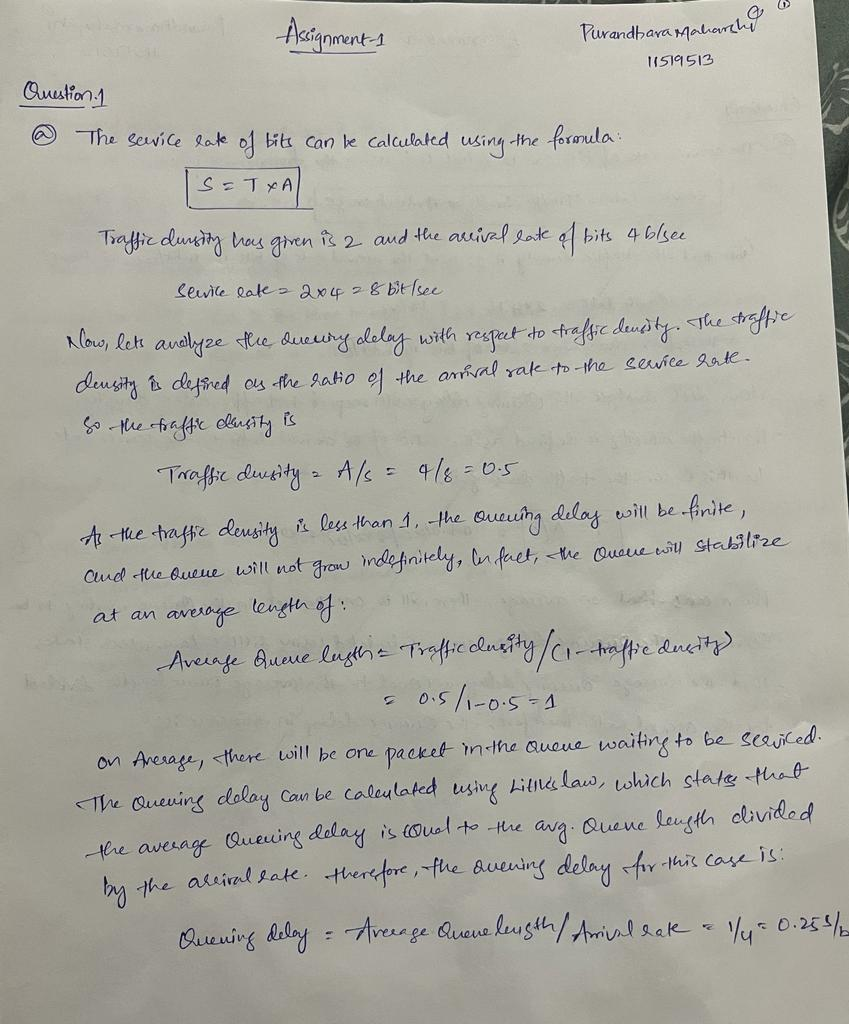 Assignment-1
Purandhara Maharshi
11519513
Question.1
ⓐ The service rate of bits can be calculated using the formula:
S = T × A
Traffic density has given is 2 and the arrival rate of bits 4 b/sec
Service rate = 2×4 = 8 bit/sec
Now, lets analyze the queuing delay with respect to traffic density. The traffic
density is defined as the ratio of the arrival rate to the service rate.
So the traffic density is
Traffic density = A/S = 4/8 = 0.5
As the traffic density is less than 1, the queuing delay will be finite,
and the queue will not grow indefinitely, In fact, the queue will stabilize
at an average length of:
Average Queue length = Traffic density/(1-traffic density)
= 0.5/1-0.5 = 1
On Average, there will be one packet in the queue waiting to be serviced.
The queuing delay can be calculated using Little's law, which states that
the average Queuing delay is equal to the avg. Queue length divided
by the arrival rate. therefore, the queuing delay for this case is:
Queuing delay = Average Queue length/Arrival rate = 1/4 = 0.25 s/b